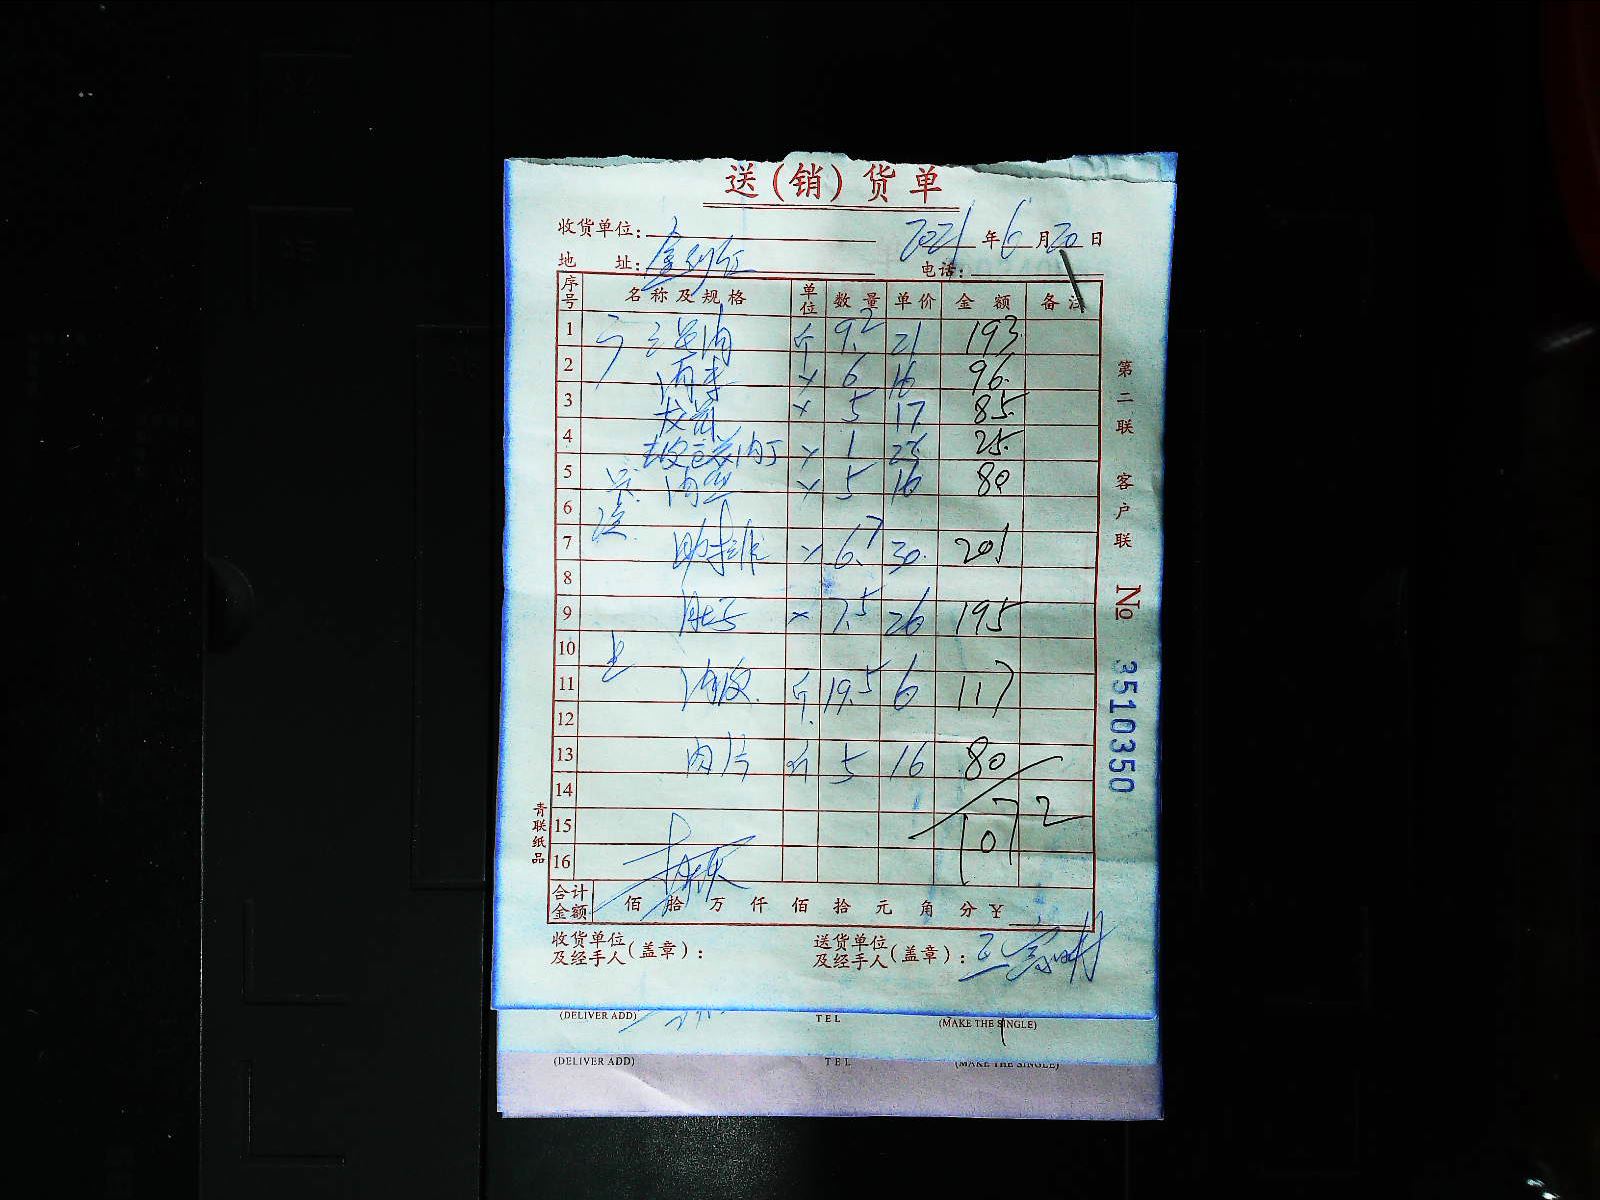 送(销)货单
收货单位: 2021 年 6 月 20 日
地 址: 电话:
序号 名称及规格 单位 数量 单价 金额 备注
1 肉 斤 9.2 21 193
2 肉 〃 6 16 96
3 〃 5 17 85
4 肉丁 〃 1 25 25
5 肉丝 〃 5 16 80
6
7 肋排 〃 6.7 30 201
8
9 肚子 〃 7.5 26 195
10
11 肉皮 斤 19.5 6 117
12
13 肉片 斤 5 16 80
14
15 1072
16
合计金额 佰 拾 万 仟 佰 拾 元 角 分 ¥
收货单位及经手人(盖章): 送货单位及经手人(盖章):
第二联 客户联
№ 3510350
青联纸品
(DELIVER ADD) TEL (MAKE THE SINGLE)
(DELIVER ADD) TEL (MAKE THE SINGLE)